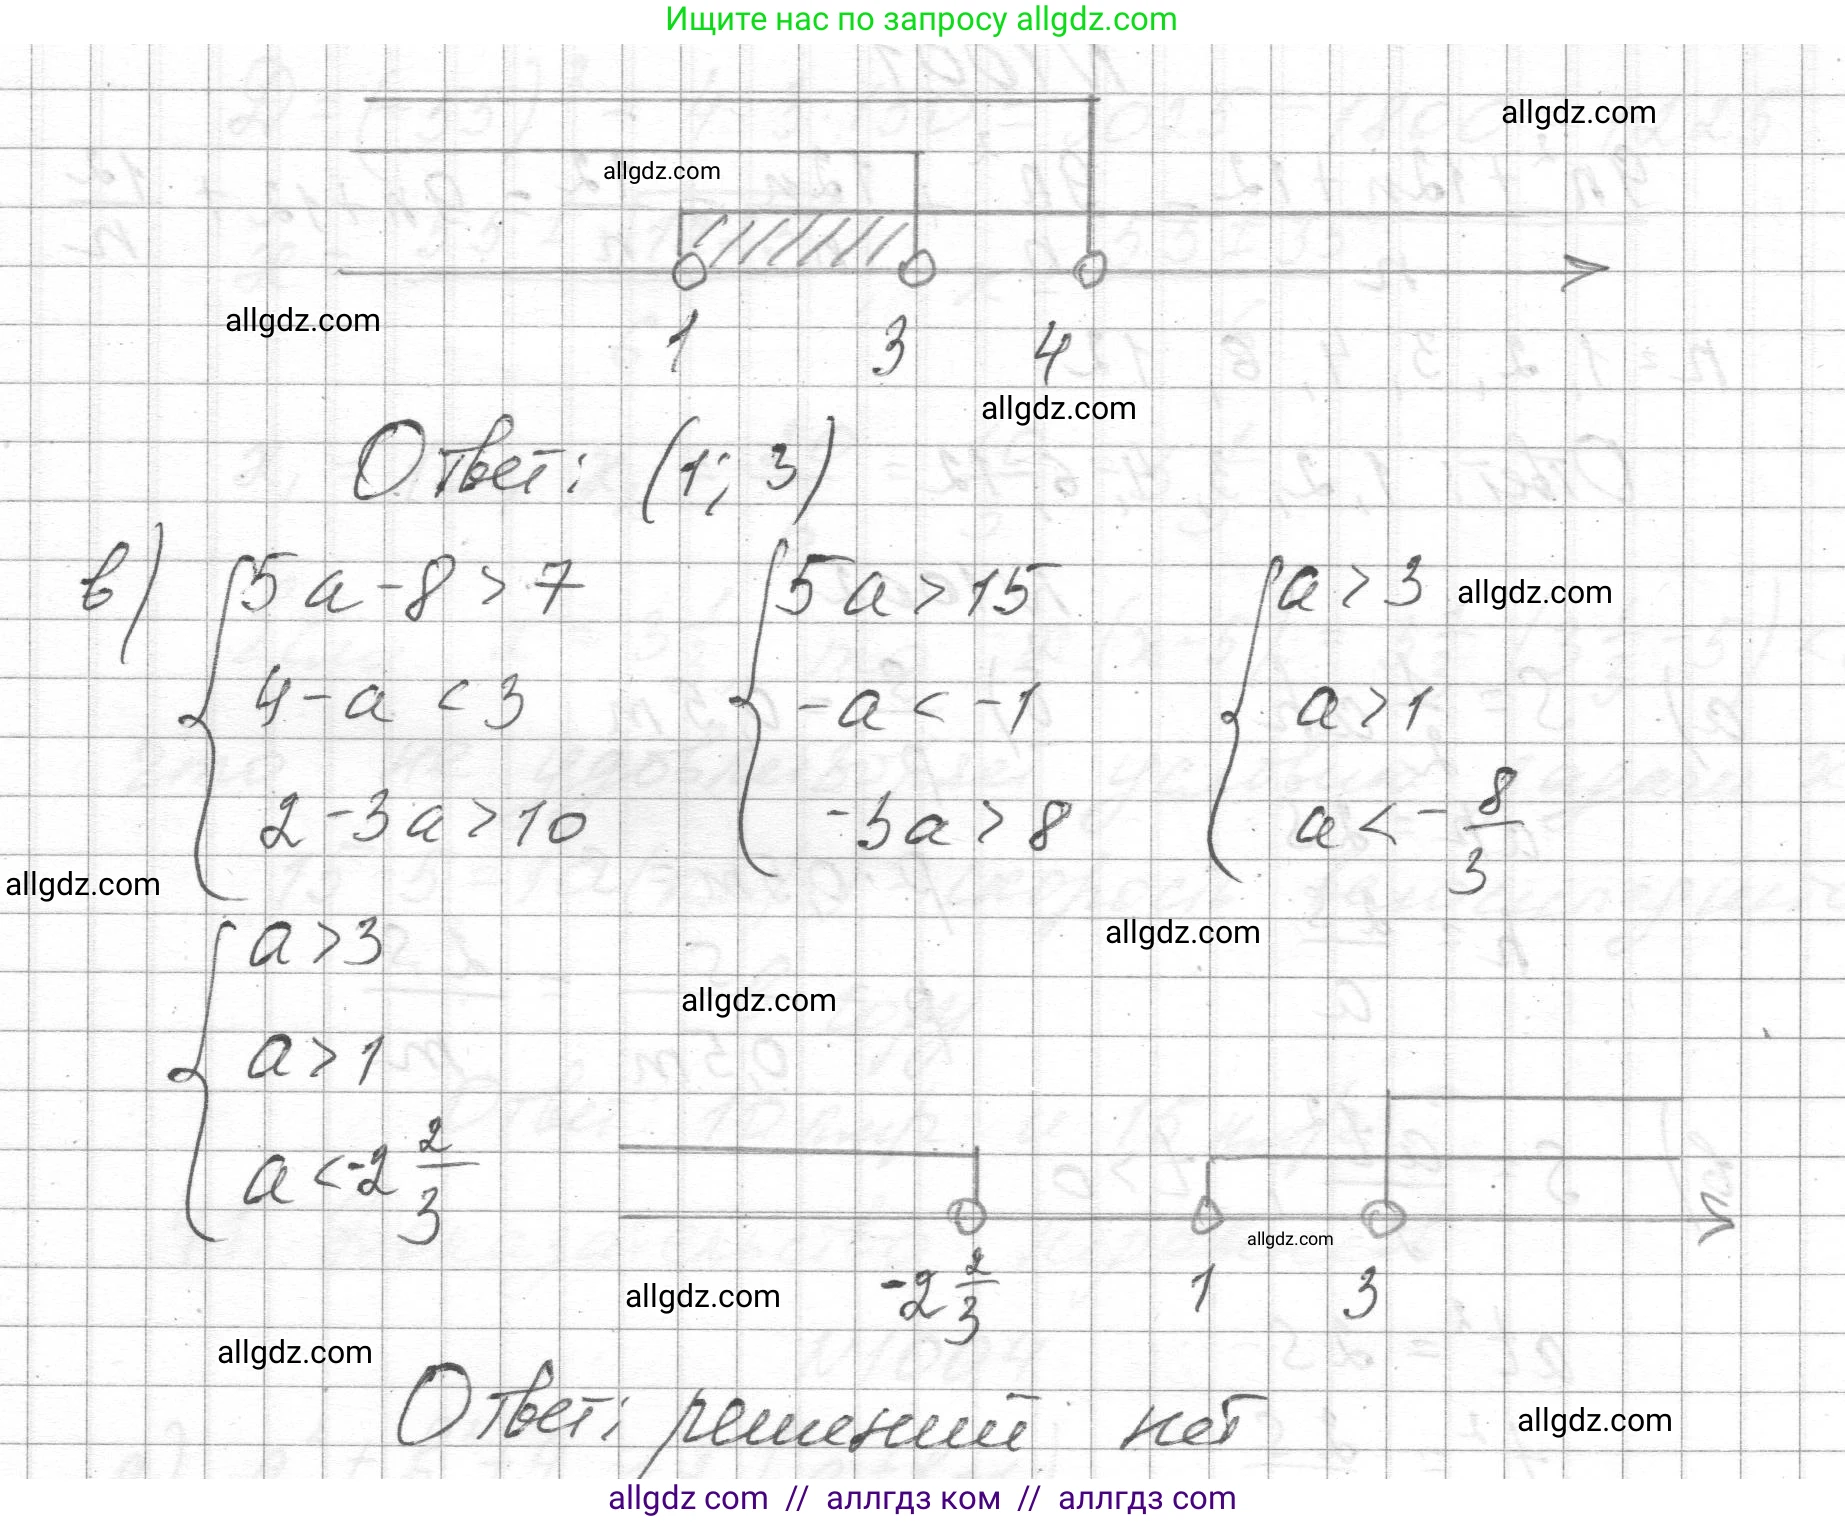 Ищите нас по запросу allgdz.com
allgdz.com
allgdz.com
allgdz.com
1 3 4
allgdz.com
Ответ: (1; 3)
в) { 5a - 8 > 7 { 5a > 15 { a > 3 allgdz.com
4 - a < 3 -a < -1 a > 1
2 - 3a > 10 -3a > 8 a < -8/3
allgdz.com
allgdz.com
{ a > 3
allgdz.com
a > 1
a < -2 2/3
allgdz.com
-2 2/3 1 3
allgdz.com
allgdz.com
Ответ: решений нет
allgdz.com
allgdz com // аллгдз ком // аллгдз com